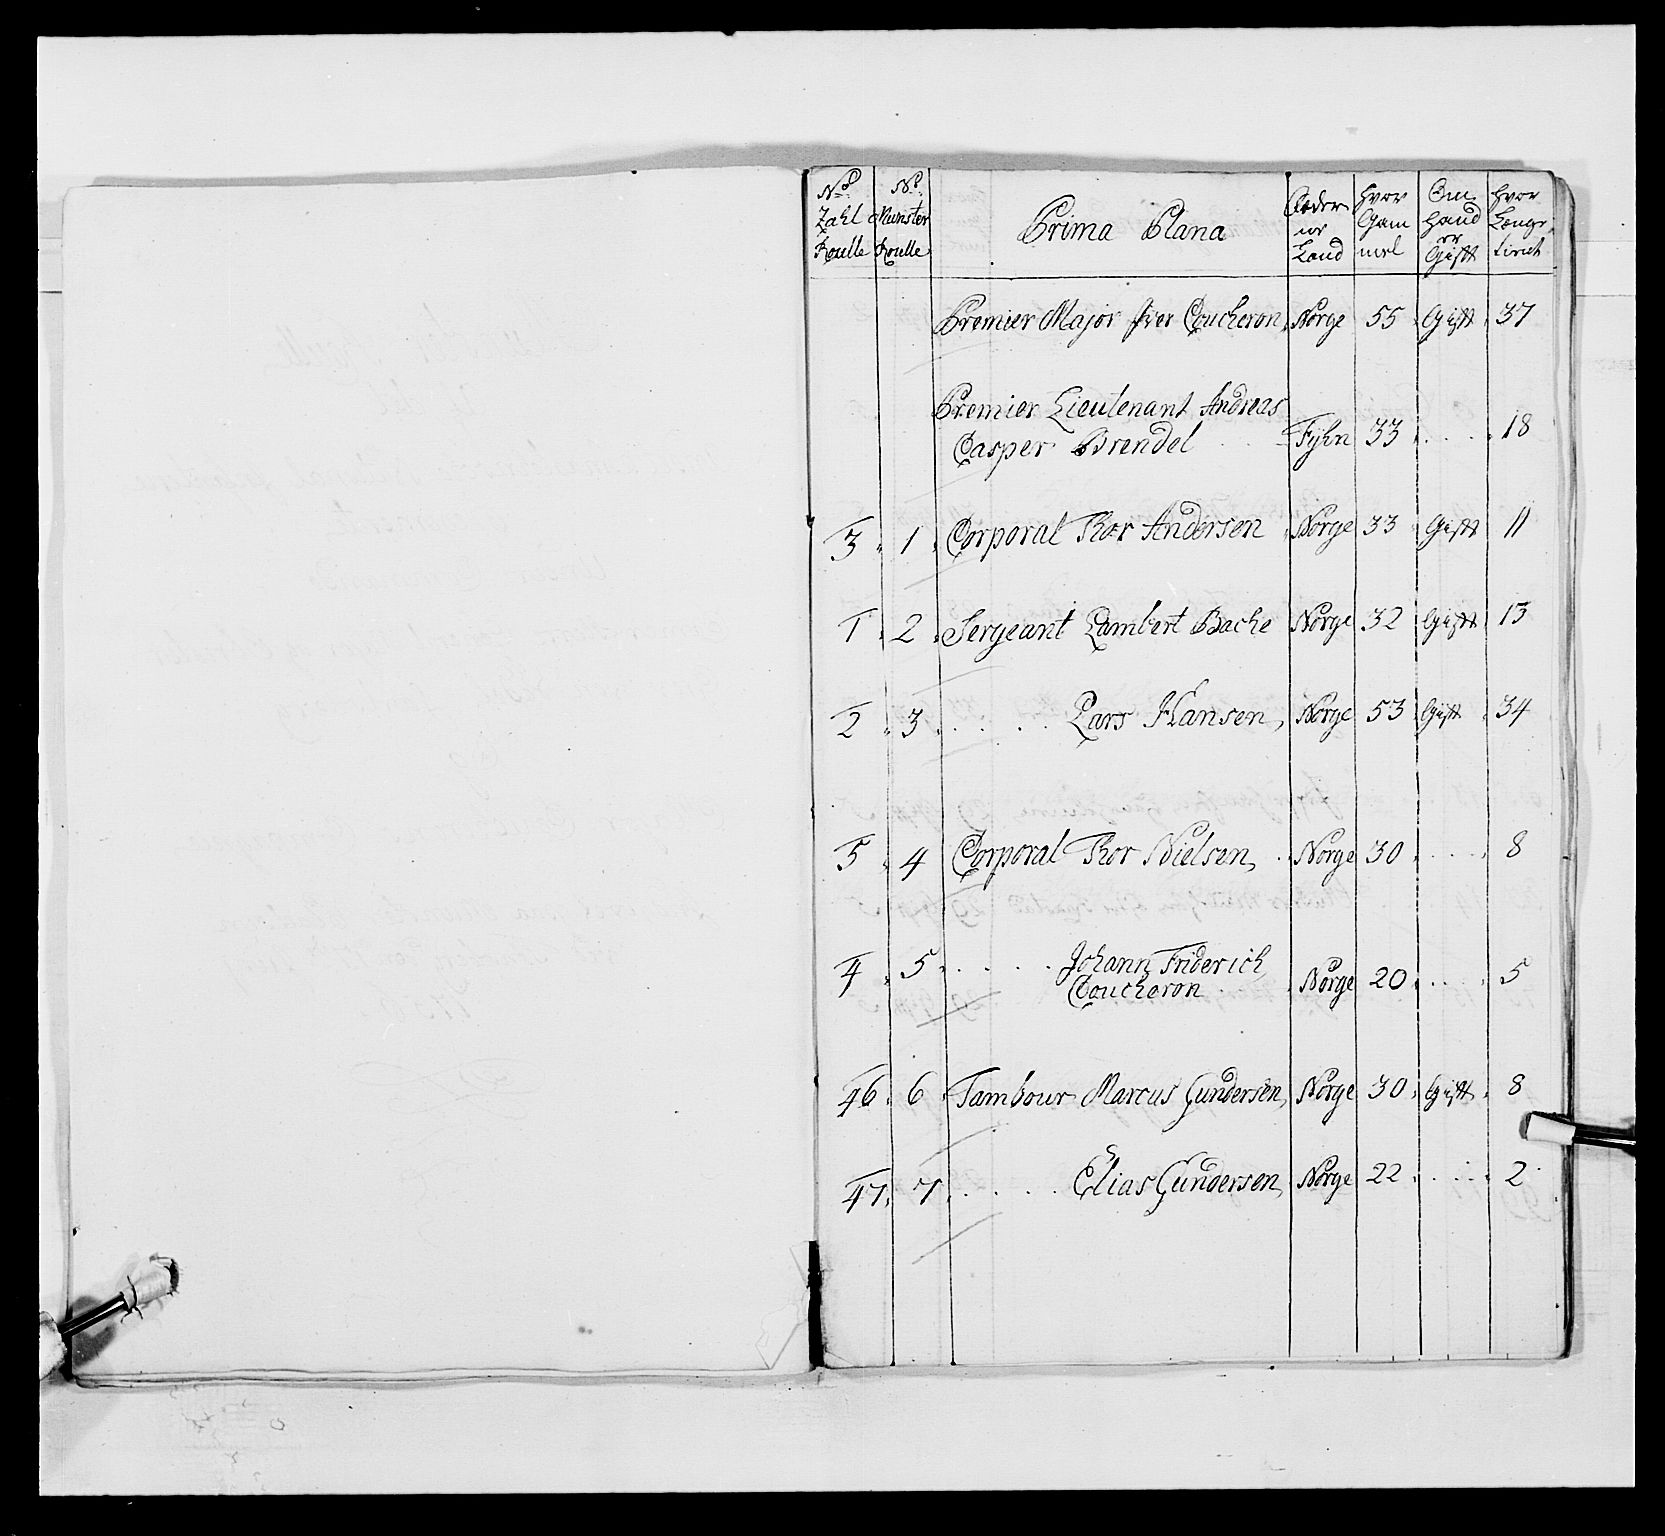 No. No. Prima Plana Föder Hvor Om Hvor
Zahl Munster ne Gam Hand Længe
Roulle Roulle Land mel er Gift tient
Premier Major Iver Coucheron, Norge 55 Gift 37
Premier Lieutenant Andreas
Casper Brendel Fyhn 33 18
3 1 Corporal Thor Andersen Norge 33 Gift 11
1 2 Sergeant Lambert Bache Norge 32 Gift 13
2 3 Lars Hansen, Norge 53 Gift 34
5 4 Corporal Thor Nielsen, Norge 30 8
4 5 Johann Friderich
Coucheron Norge 20 5
46 6 Tambour Marcus Gundersen, Norge 30 Gift 8
47 7 Elias Gundersen, Norge 22 2